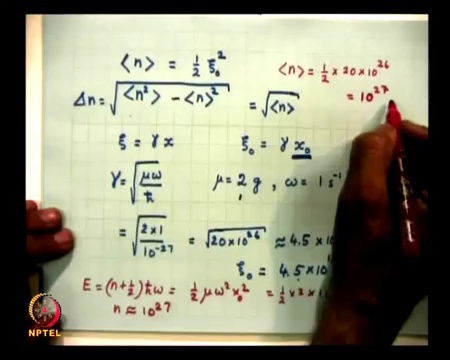 ⟨n⟩ = 1/2 ξ₀²
⟨n⟩ = 1/2 × 20 × 10²⁶
= 10²⁷
Δn = √(⟨n²⟩ − ⟨n⟩²) = √⟨n⟩
ξ = γ x
ξ₀ = γ x₀
γ = √(μω/ħ)
μ = 2 g, ω = 1 s⁻¹
= √(2×1/10⁻²⁷) = √(20×10²⁶) ≈ 4.5×10
ξ₀ = 4.5×10
E = (n+1/2)ħω = 1/2 μω²x₀² = 1/2 × 2 ×
n ≈ 10²⁷
NPTEL